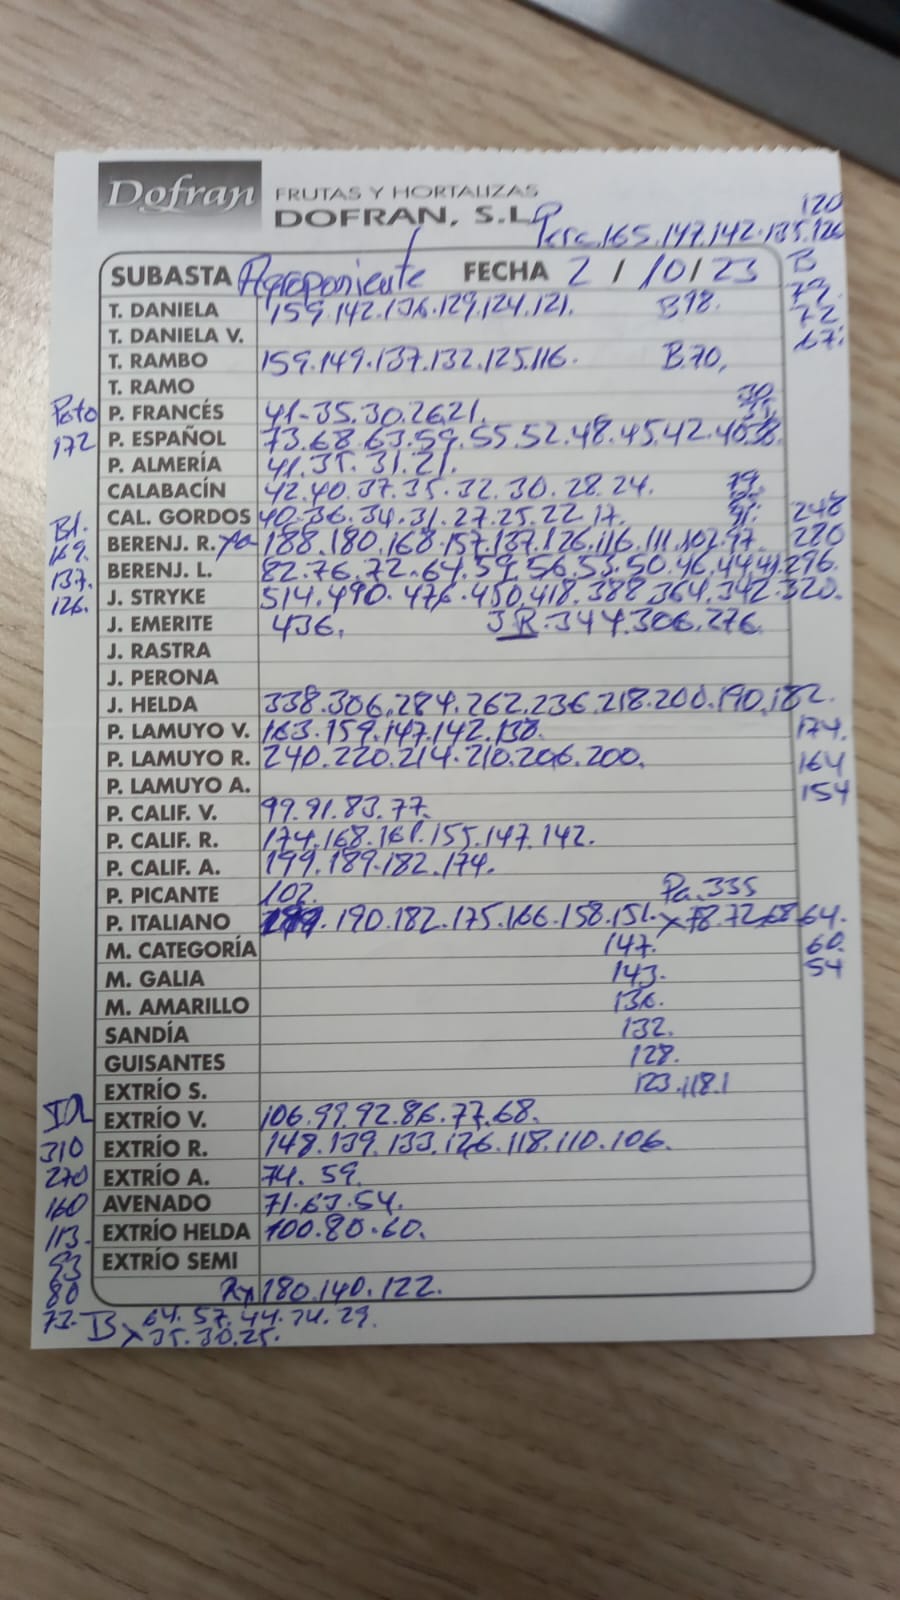 Dofran FRUTAS Y HORTALIZAS
DOFRAN, S.L.
120
165.147.142.135.120
SUBASTA Agroponiente FECHA 2 / 10 / 23 B
T. DANIELA 159.142.136.129.124.121. B98. 79.
72
T. DANIELA V.
67.
T. RAMBO 159.149.137.132.125.116. B.70,
T. RAMO
Poto P. FRANCÉS 41-35.30.26.21.
172 P. ESPAÑOL 73.68.63.59.55.52.48.45.42.40.38.
P. ALMERÍA 41.35.31.21.
CALABACÍN 42.40.37.35.32.30.28.24.
CAL. GORDOS 40.36.34.31.27.25.22.17. 248
Bl. BERENJ. R. 188.180.168.157.137.126.116.111.102.97. 220
169.
137. BERENJ. L. 82.76.72.64.59.56.53.50.46.44.41. 296.
126. J. STRYKE 514.490.476.450.418.388.364.342.320.
J. EMERITE 436. JR.344.306.276.
J. RASTRA
J. PERONA
J. HELDA 338.306.284.262.236.218.200.190.182.
P. LAMUYO V. 163.159.147.142.138. 174.
P. LAMUYO R. 240.220.214.210.206.200. 164
P. LAMUYO A. 154
P. CALIF. V. 99.91.83.77.
P. CALIF. R. 174.168.161.155.147.142.
P. CALIF. A. 199.189.182.174.
P. PICANTE 102. Pa.335
P. ITALIANO 190.182.175.166.158.151. x78.72.68.64.
M. CATEGORÍA 147. 60.
M. GALIA 143. 54
M. AMARILLO 136.
SANDÍA 132.
GUISANTES 128.
EXTRÍO S. 123.118.1
EXTRÍO V. 106.99.92.86.77.68.
310 EXTRÍO R. 148.139.133.126.118.110.106.
270 EXTRÍO A. 74.59.
160 AVENADO 71.63.54.
113. EXTRÍO HELDA 100.80.60.
93 EXTRÍO SEMI
80 Rx180.140.122.
73. B x 64.57.44.34.29.
35.30.25.